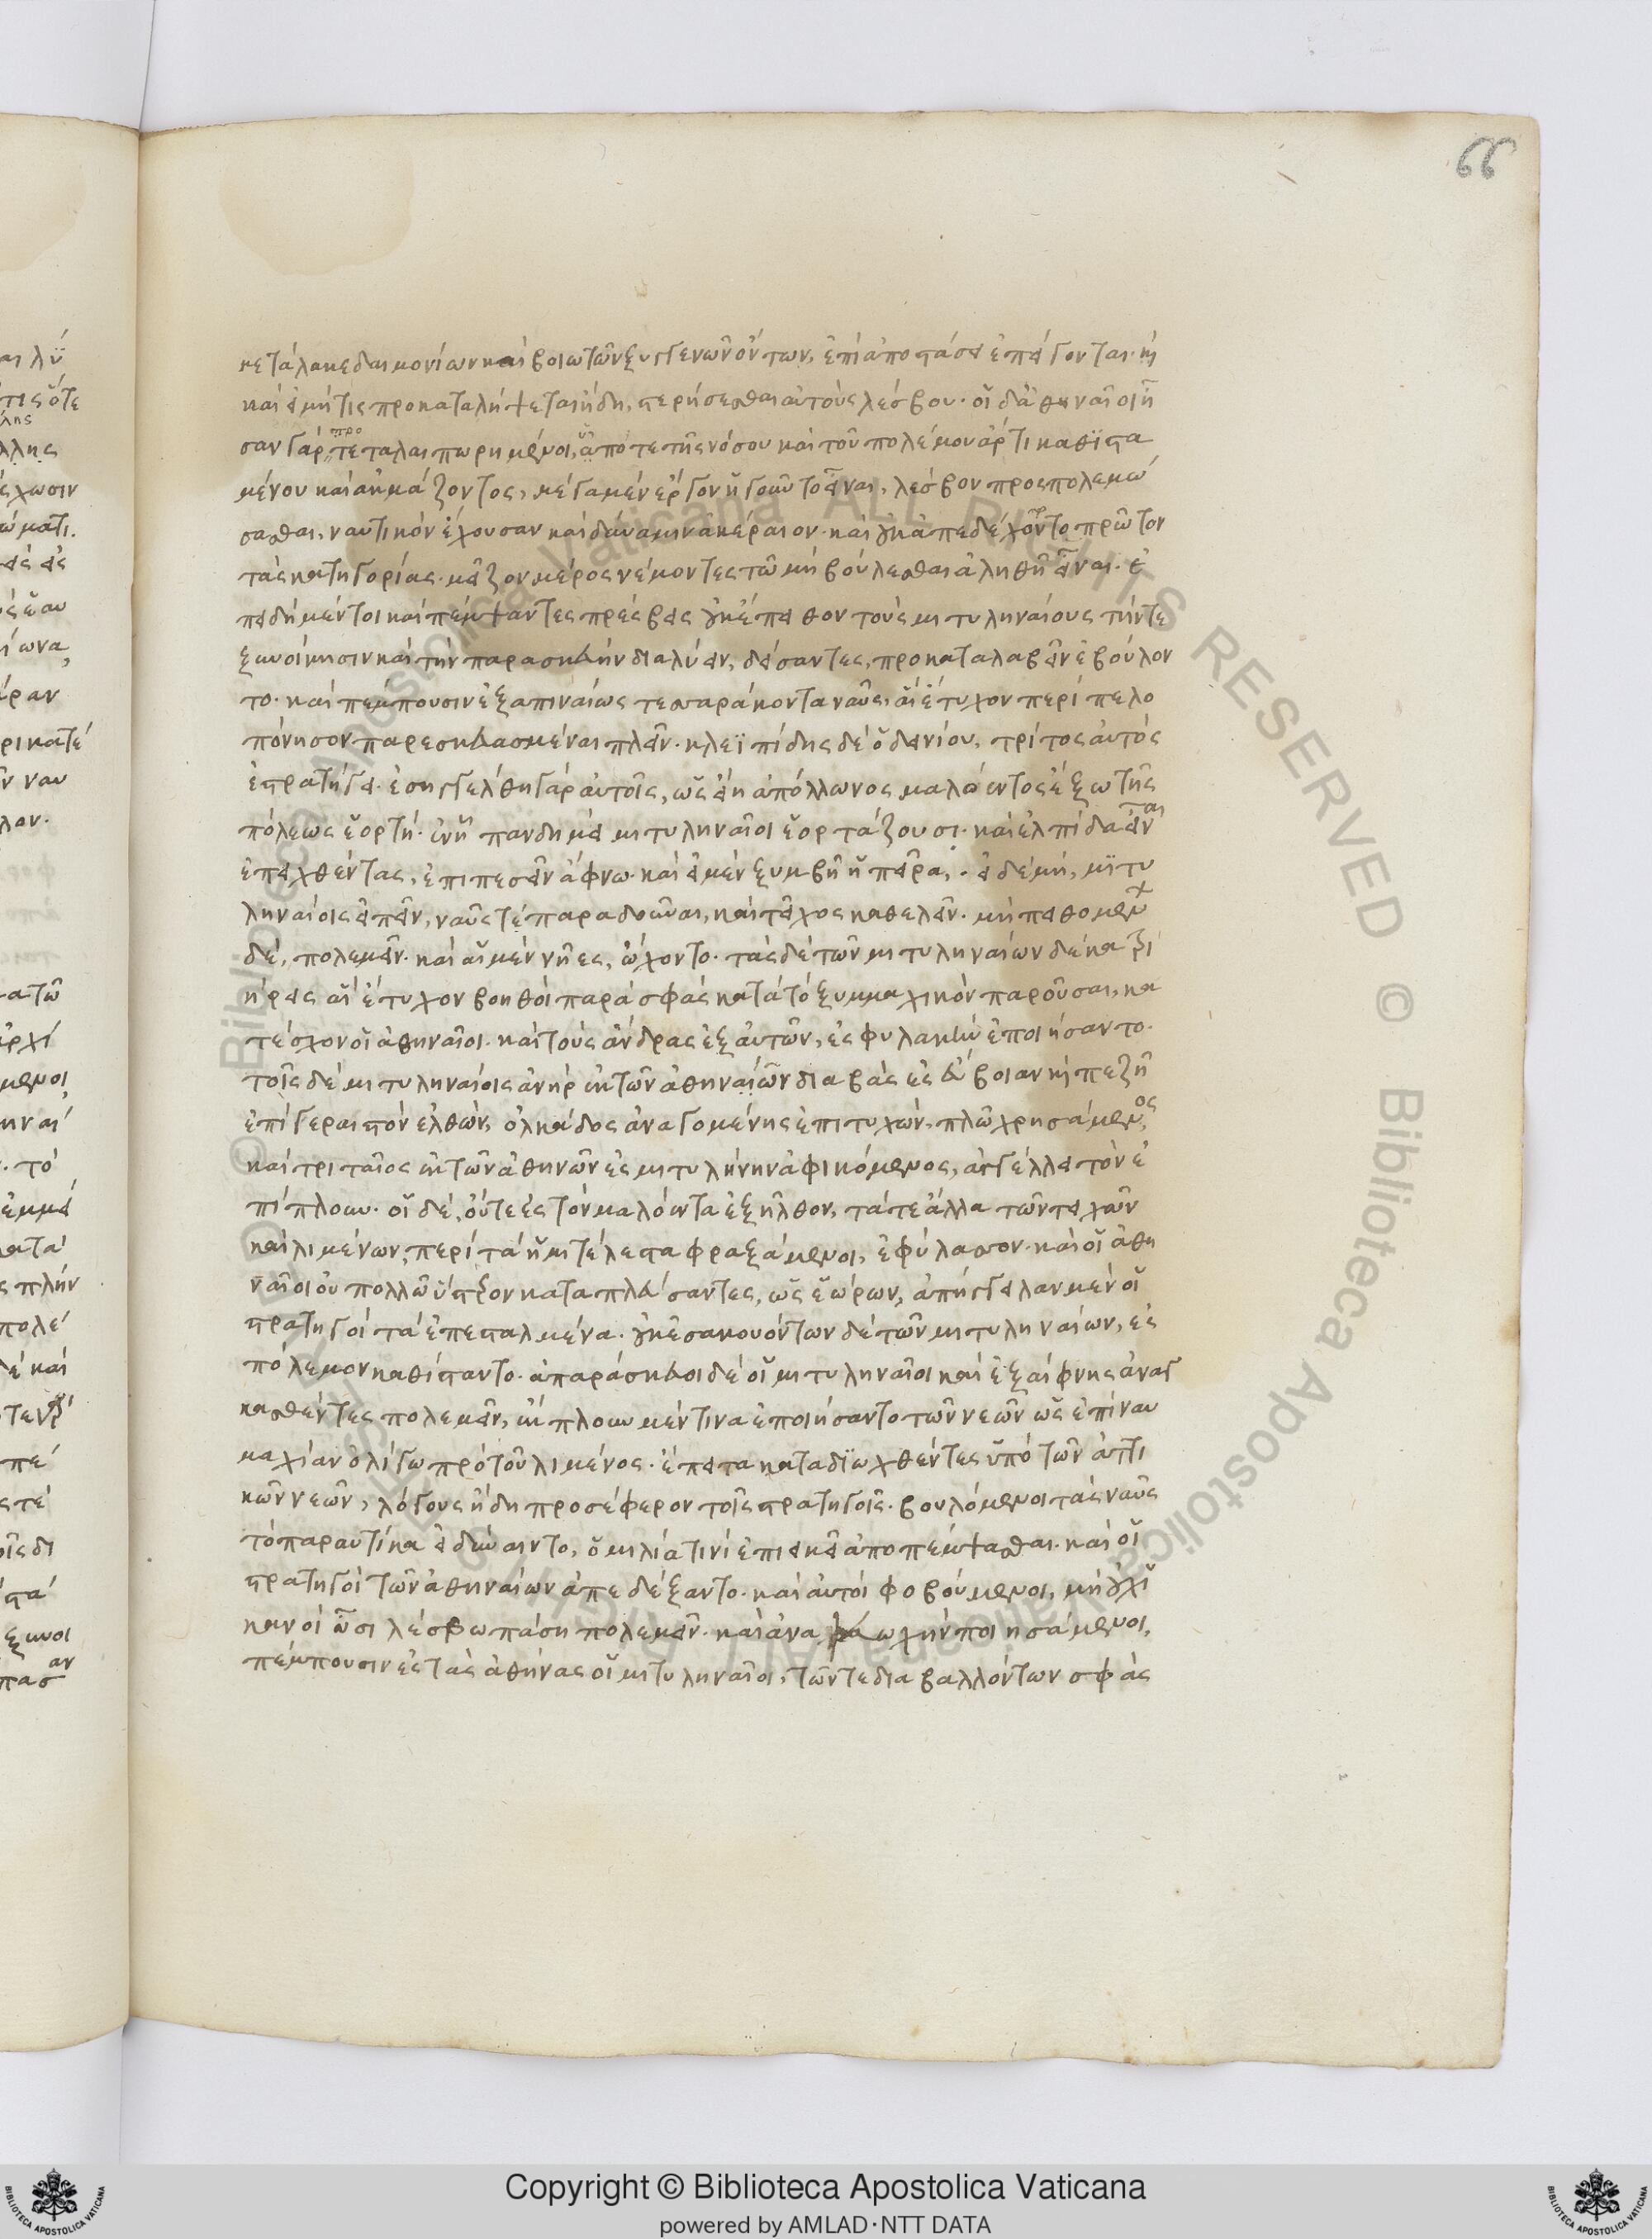 66
μετὰ λακεδαιμονίων καὶ βοιωτῶν ξυγγενῶν ὄντων, ἐπὶ ἀποστάσει ἐπείγονται· κὶ
καὶ εἰ μήτις προκαταλήψεται ἤδη, στερήσεσθαι αὐτοὺς λέσβου· οἱ δ' ἀθηναῖοι ἦ
σαν γὰρ τεταλαιπωρημένοι, ὑπό τε τῆς νόσου καὶ τοῦ πολέμου ἄρτι καθϊστα
προ
μένου καὶ ἀκμάζοντος, μέγα μὲν ἔργον ἡγοῦντο εἶναι, λέσβον προσπολεμώ
σασθαι, ναυτικὸν ἔχουσαν καὶ δύναμιν ἀκέραιον· καὶ οὐκ ἀπεδέχοντο πρῶτον
τὰς κατηγορίας· μεῖζον μέρος νέμοντες τῶ μὴ βούλεσθαι ἀληθῆ εἶναι· ἐ
πειδὴ μέντοι καὶ πέμψαντες πρέσβεις οὐκ ἔπειθον τοὺς μιτυληναίους τήν τε
ξυνοίκησιν καὶ τὴν παρασκευὴν διαλύειν, δείσαντες, προκαταλαβεῖν ἐβούλον
το· καὶ πέμπουσιν ἐξαπιναίως τεσσαράκοντα ναῦς· αἳ ἔτυχον περὶ πελο
πόνησον παρεσκευασμέναι πλεῖν· κλεϊπίδης δὲ ὁ δεινίου, τρίτος αὐτὸς
ἐστρατήγει· ἐσηγγέλθη γὰρ αὐτοῖς, ὡς εἴη ἀπόλλωνος μαλόεντος ἔξω τῆς
πόλεως ἑορτή· ἐν ᾗ πανδημεὶ μιτυληναῖοι ἑορτάζουσι· καὶ ἐλπίδα εἶναι
ἐπειχθέντας, ἐπιπεσεῖν ἄφνω· καὶ εἰ μὲν ξυμβῆ ἡ πεῖρα, · εἰ δὲ μή, μϊτυ
ληναίοις εἰπεῖν, ναῦς τὲ παραδοῦναι, καὶ τεῖχος καθελεῖν· μὴ πειθομένων
δὲ, πολεμεῖν· καὶ αἱ μὲν νῆες, ᾤχοντο· τὰς δὲ τῶν μιτυληναίων δέκα τρι
ήρεις αἳ ἔτυχον βοηθοὶ παρὰ σφὰς κατὰ τὸ ξυμμαχικὸν παροῦσαι, κα
τέσχον οἱ ἀθηναῖοι· καὶ τοὺς ἄνδρας ἐξ αὐτῶν, ἐς φυλακὴν ἐποιήσαντο·
τοῖς δὲ μιτυληναίοις ἀνὴρ ἐκ τῶν ἀθηναίων διαβὰς ἐς εὔβοιαν κὶ πεζῆ
ἐπὶ γεραιστὸν ἐλθὼν, ὁλκάδος ἀναγομένης ἐπιτυχὼν, πλῶ χρησάμενος,
καὶ τριταῖος ἐκ τῶν ἀθηνῶν ἐς μιτυλήνην ἀφικόμενος, ἀγγέλλει τὸν ἐ
πίπλουν· οἱ δὲ, οὔτε ἐς τὸν μαλόεντα ἐξῆλθον, τά τε ἄλλα τῶν τειχῶν
καὶ λιμένων, περὶ τὰ ἡμιτέλεστα φραξάμενοι, ἐφύλασσον· καὶ οἱ ἀθη
ναῖοι οὐ πολλῶ ὕστερον καταπλεύσαντες, ὡς ἑώρων, ἀπήγγειλαν μὲν οἱ
στρατηγοὶ τὰ ἐπεσταλμένα· οὐκ ἐσακουόντων δὲ τῶν μιτυληναίων, ἐς
πόλεμον καθίσταντο· ἀπαράσκευοι δὲ οἱ μιτυληναῖοι καὶ ἐξαίφνης ἀναγ
κασθέντες πολεμεῖν, ἔκπλουν μέν τινα ἐποιήσαντο τῶν νεῶν ὡς ἐπὶ ναυ
μαχίαν ὀλίγω πρὸ τοῦ λιμένος· ἔπειτα καταδϊωχθέντες ὑπὸ τῶν ἀττι
κῶν νεῶν, λόγους ἤδη προσέφερον τοῖς στρατηγοῖς· βουλόμενοι τὰς ναῦς
τὸ παραυτίκα εἰ δύναιντο, ὁμιλία τινὶ ἐπιεικεῖ ἀποπέμψασθαι· καὶ οἱ
στρατηγοὶ τῶν ἀθηναίων ἀπεδέξαντο· καὶ αὐτοὶ φοβούμενοι, μὴ οὐχ ἱ
κανοὶ ὦσι λέσβω πάση πολεμεῖν· καὶ ἀνα ωχὴν ποιησάμενοι,
πέμπουσιν ἐς τὰς ἀθήνας οἱ μιτυληναῖοι, τῶν τε διαβαλλόντων σφὰς
Copyright © Biblioteca Apostolica Vaticana
powered by AMLAD·NTT DATA